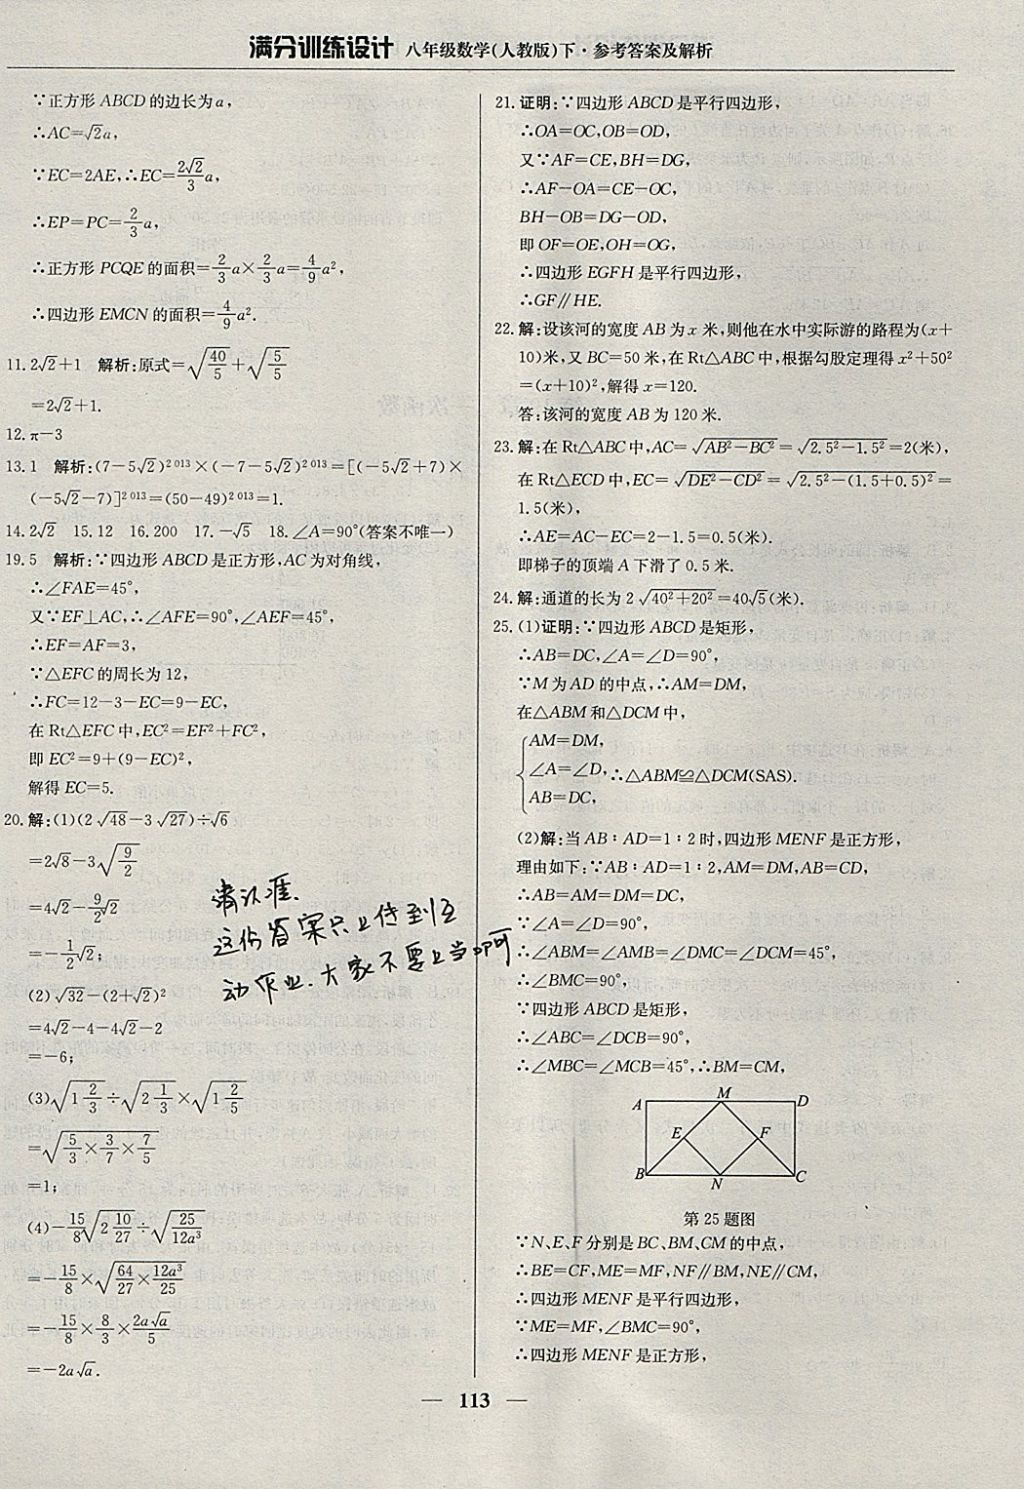 满分训练设计 八年级数学(人教版)下·参考答案及解析
∵正方形 ABCD 的边长为 a,
∴AC=√2a,
∵EC=2AE,∴EC=2√2/3 a,
∴EP=PC=2/3 a,
∴正方形 PCQE 的面积=2/3 a×2/3 a=4/9 a²,
∴四边形 EMCN 的面积=4/9 a².
11. 2√2+1 解析:原式=√(40/5)+√(5/5)
=2√2+1.
12. π−3
13. 1 解析:(7−5√2)²⁰¹³×(−7−5√2)²⁰¹³=[(−5√2+7)×
(−5√2−7)]²⁰¹³=(50−49)²⁰¹³=1.
14. 2√2 15. 12 16. 200 17. −√5 18. ∠A=90°(答案不唯一)
19. 5 解析:∵四边形 ABCD 是正方形,AC 为对角线,
∴∠FAE=45°,
又∵EF⊥AC,∴∠AFE=90°,∠AEF=45°,
∴EF=AF=3,
∵△EFC 的周长为 12,
∴FC=12−3−EC=9−EC,
在 Rt△EFC 中,EC²=EF²+FC²,
即 EC²=9+(9−EC)²,
解得 EC=5.
20. 解:(1)(2√48−3√27)÷√6
=2√8−3√(9/2)
=4√2−9/2√2
=−1/2√2;
(2)√32−(2+√2)²
=4√2−4−4√2−2
=−6;
(3)√(1 2/3)÷√(2 1/3)×√(1 2/5)
=√(5/3×3/7×7/5)
=1;
(4)−15/8√(2 10/27)÷√(25/12a³)
=−15/8×√(64/27×12a³/25)
=−15/8×8/3×2a√a/5
=−2a√a.
请认准
这份答案只上传到互
动作业.大家不要上当啊
21. 证明:∵四边形 ABCD 是平行四边形,
∴OA=OC,OB=OD,
又∵AF=CE,BH=DG,
∴AF−OA=CE−OC,
BH−OB=DG−OD,
即 OF=OE,OH=OG,
∴四边形 EGFH 是平行四边形,
∴GF∥HE.
22. 解:设该河的宽度 AB 为 x 米,则他在水中实际游的路程为(x+
10)米,又 BC=50 米,在 Rt△ABC 中,根据勾股定理得 x²+50²
=(x+10)²,解得 x=120.
答:该河的宽度 AB 为 120 米.
23. 解:在 Rt△ABC 中,AC=√(AB²−BC²)=√(2.5²−1.5²)=2(米),
在 Rt△ECD 中,EC=√(DE²−CD²)=√(2.5²−(1.5+0.5)²)=
1.5(米),
∴AE=AC−EC=2−1.5=0.5(米).
即梯子的顶端 A 下滑了 0.5 米.
24. 解:通道的长为 2√(40²+20²)=40√5(米).
25. (1)证明:∵四边形 ABCD 是矩形,
∴AB=DC,∠A=∠D=90°,
∵M 为 AD 的中点,∴AM=DM,
在△ABM 和△DCM 中,
AM=DM,
∠A=∠D, ∴△ABM≌△DCM(SAS).
AB=DC,
(2)解:当 AB∶AD=1∶2 时,四边形 MENF 是正方形,
理由如下:∵AB∶AD=1∶2,AM=DM,AB=CD,
∴AB=AM=DM=DC,
∵∠A=∠D=90°,
∴∠ABM=∠AMB=∠DMC=∠DCM=45°,
∴∠BMC=90°,
∵四边形 ABCD 是矩形,
∴∠ABC=∠DCB=90°,
∴∠MBC=∠MCB=45°,∴BM=CM,
A M D
E F
B N C
第 25 题图
∵N、E、F 分别是 BC、BM、CM 的中点,
∴BE=CF,ME=MF,NF∥BM,NE∥CM,
∴四边形 MENF 是平行四边形,
∵ME=MF,∠BMC=90°,
∴四边形 MENF 是正方形,
— 113 —